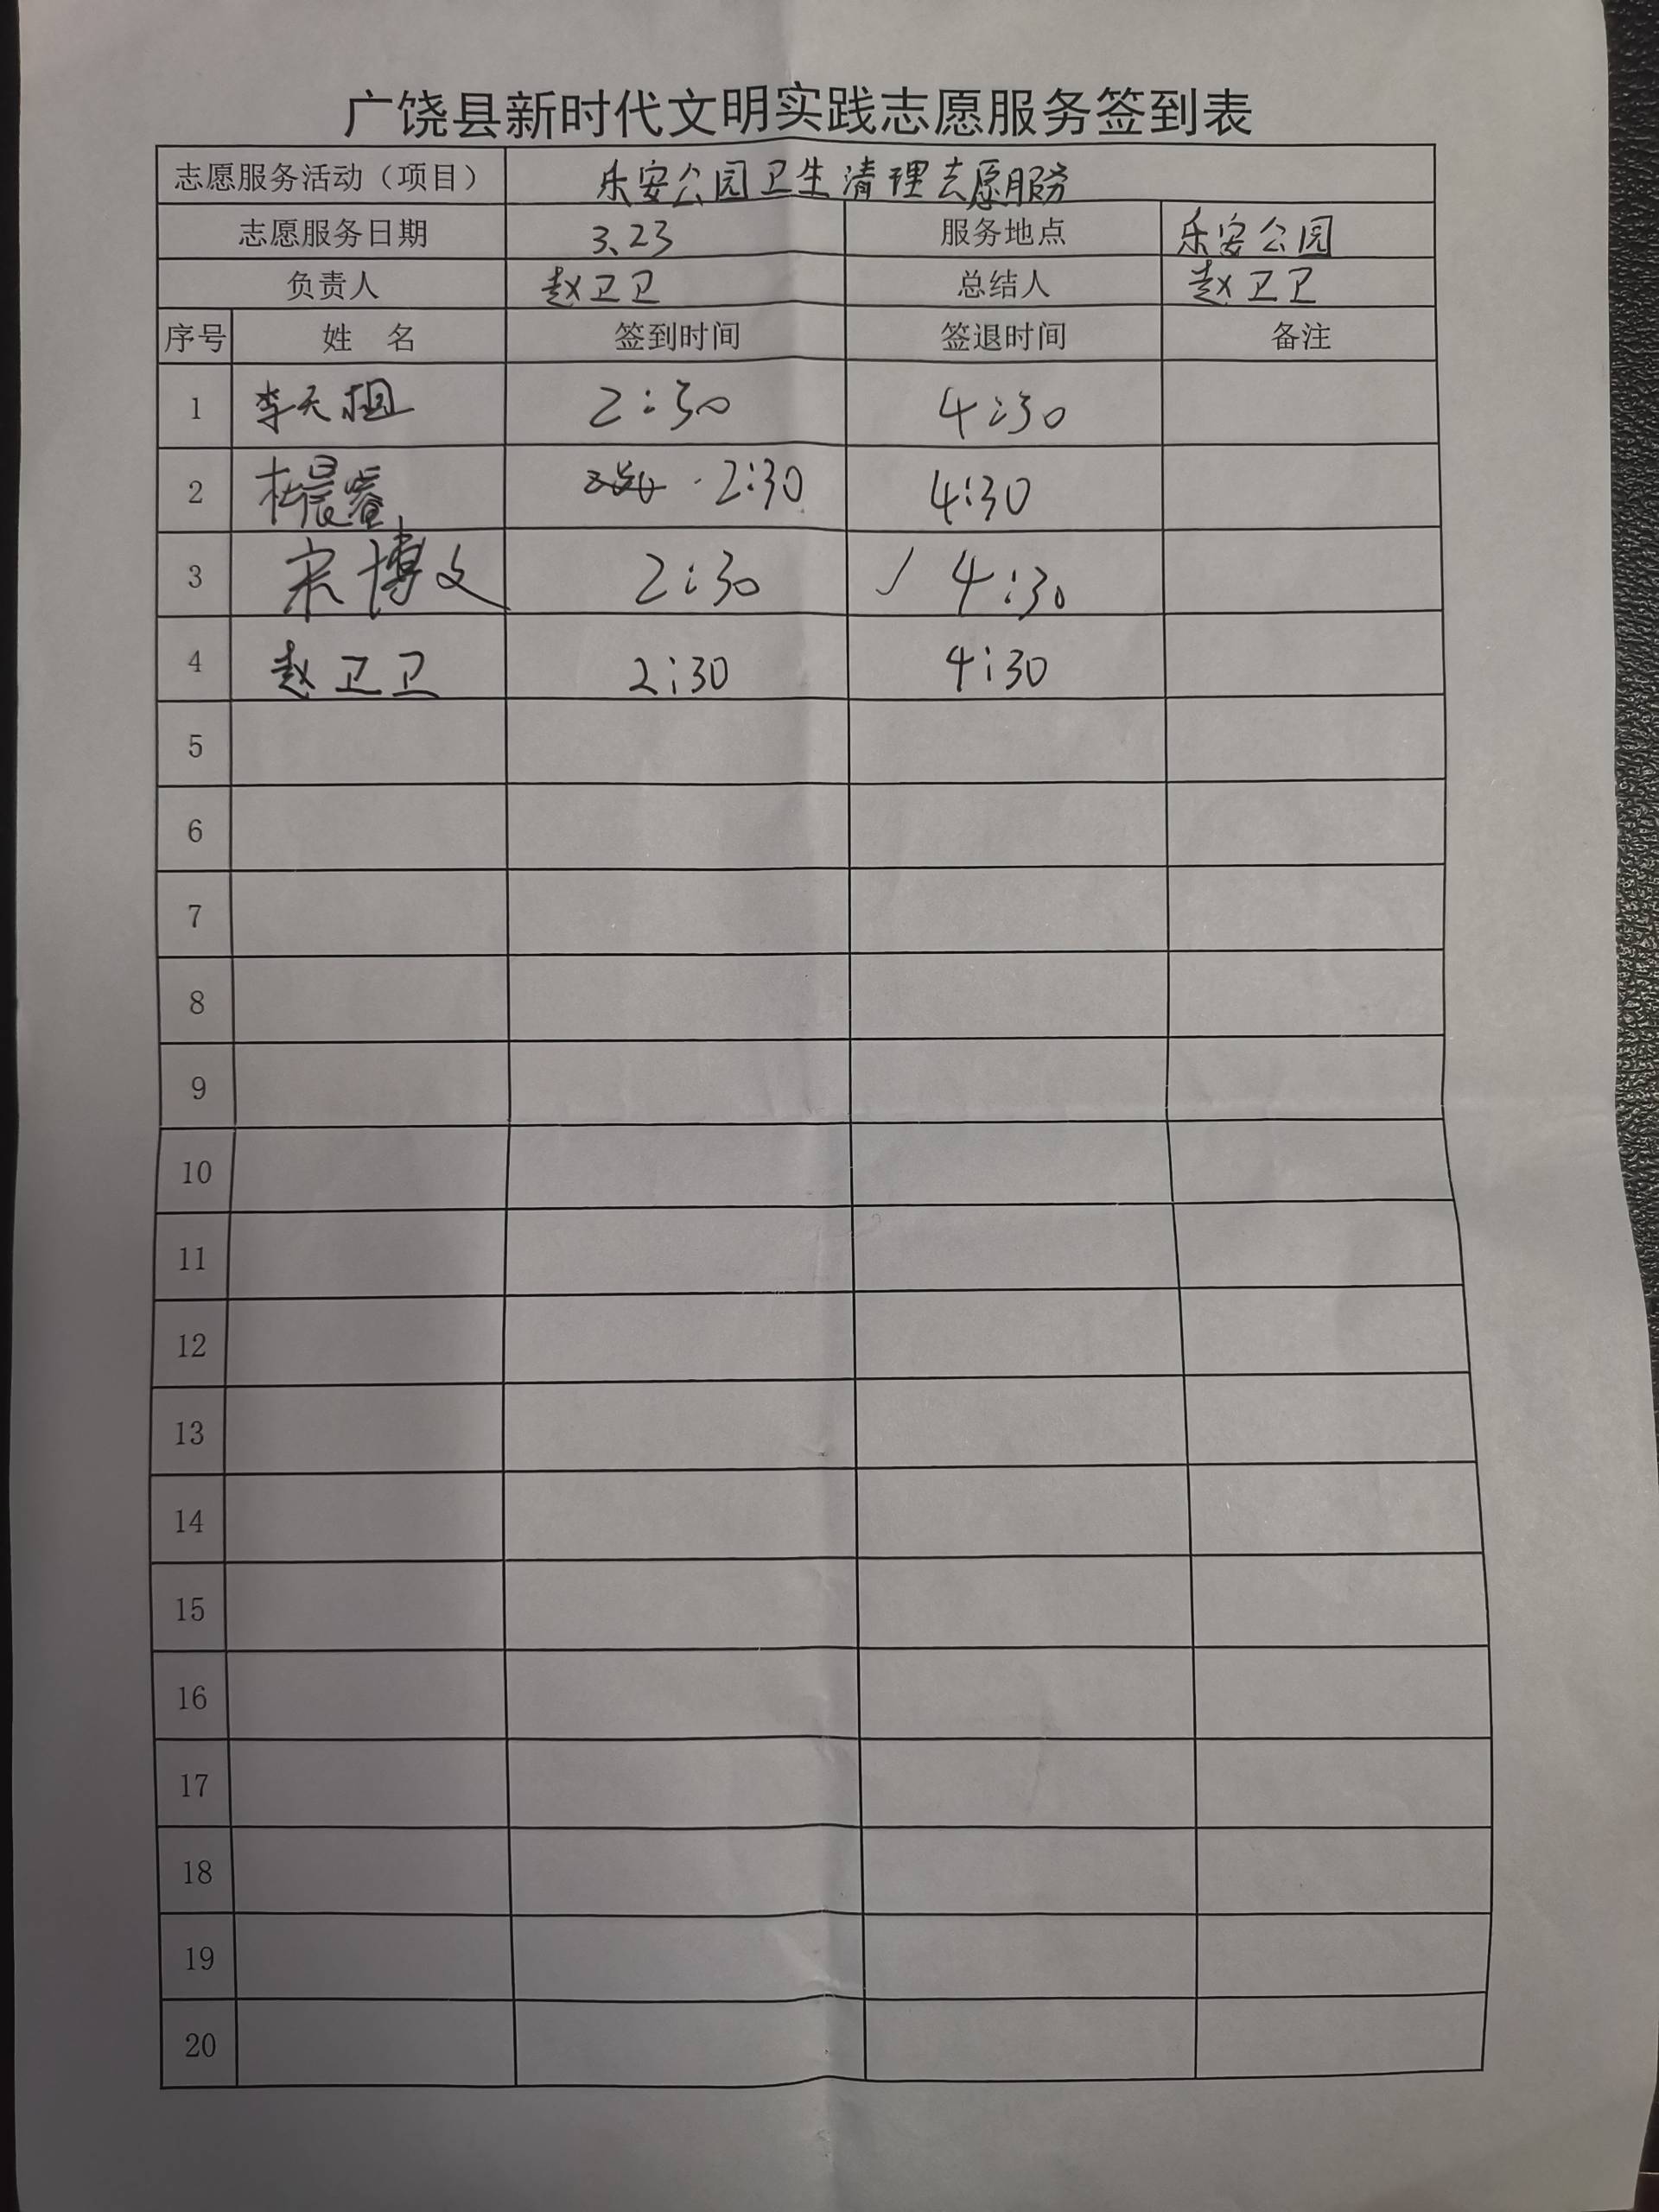 广饶县新时代文明实践志愿服务签到表
志愿服务活动（项目） 乐安公园卫生清理志愿服务
志愿服务日期 3.23 服务地点 乐安公园
负责人 赵卫卫 总结人 赵卫卫
序号 姓 名 签到时间 签退时间 备注
1 李天 2:30 4:30
2 晨睿 2:30 4:30
3 宋博文 2:30 √ 4:30
4 赵卫卫 2:30 4:30
5
6
7
8
9
10
11
12
13
14
15
16
17
18
19
20